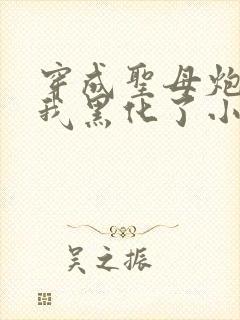 穿成圣母炮
我黑化了小
吴之振